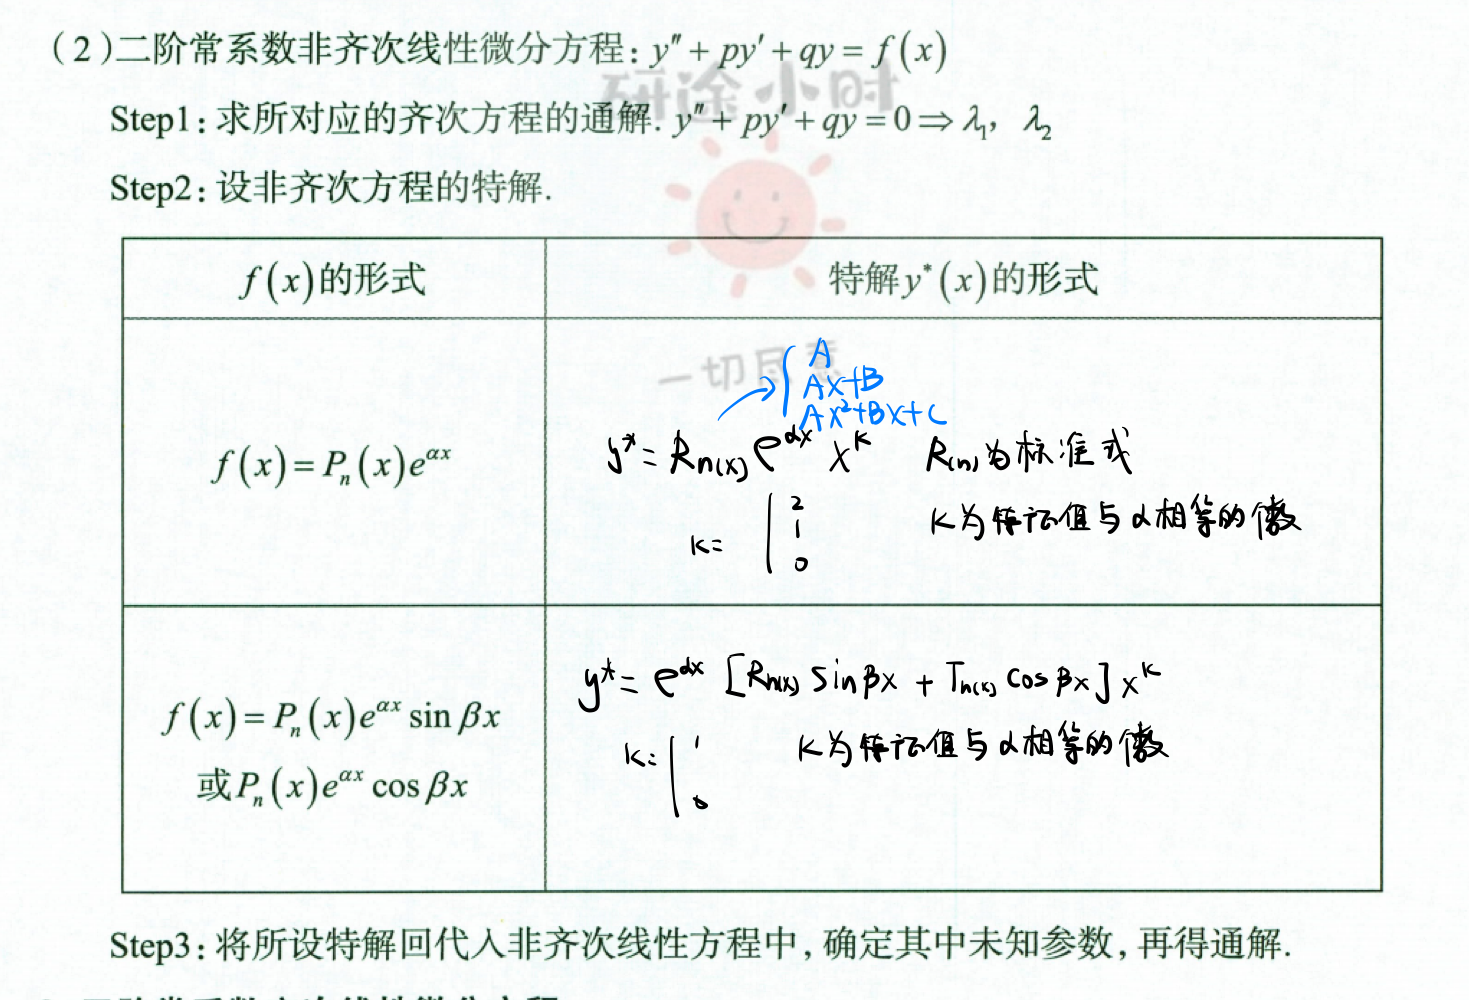 (2)二阶常系数非齐次线性微分方程: y″ + py′ + qy = f(x)
研途小时
Step1: 求所对应的齐次方程的通解. y″ + py′ + qy = 0 ⇒ λ₁, λ₂
Step2: 设非齐次方程的特解.
f(x)的形式 特解y*(x)的形式
一切尽意
A
Ax+B
Ax²+Bx+C
f(x) = Pₙ(x)e^{αx} y* = Rn(x) e^{αx} x^k R(n)为标准式
k= 2 1 0 K为特征值与α相等的个数
f(x) = Pₙ(x)e^{αx} sin βx y* = e^{αx} [Rn(x) sinβx + Tn(x) cosβx] x^k
或Pₙ(x)e^{αx} cos βx k= 1 0 K为特征值与α相等的个数
Step3: 将所设特解回代入非齐次线性方程中, 确定其中未知参数, 再得通解.